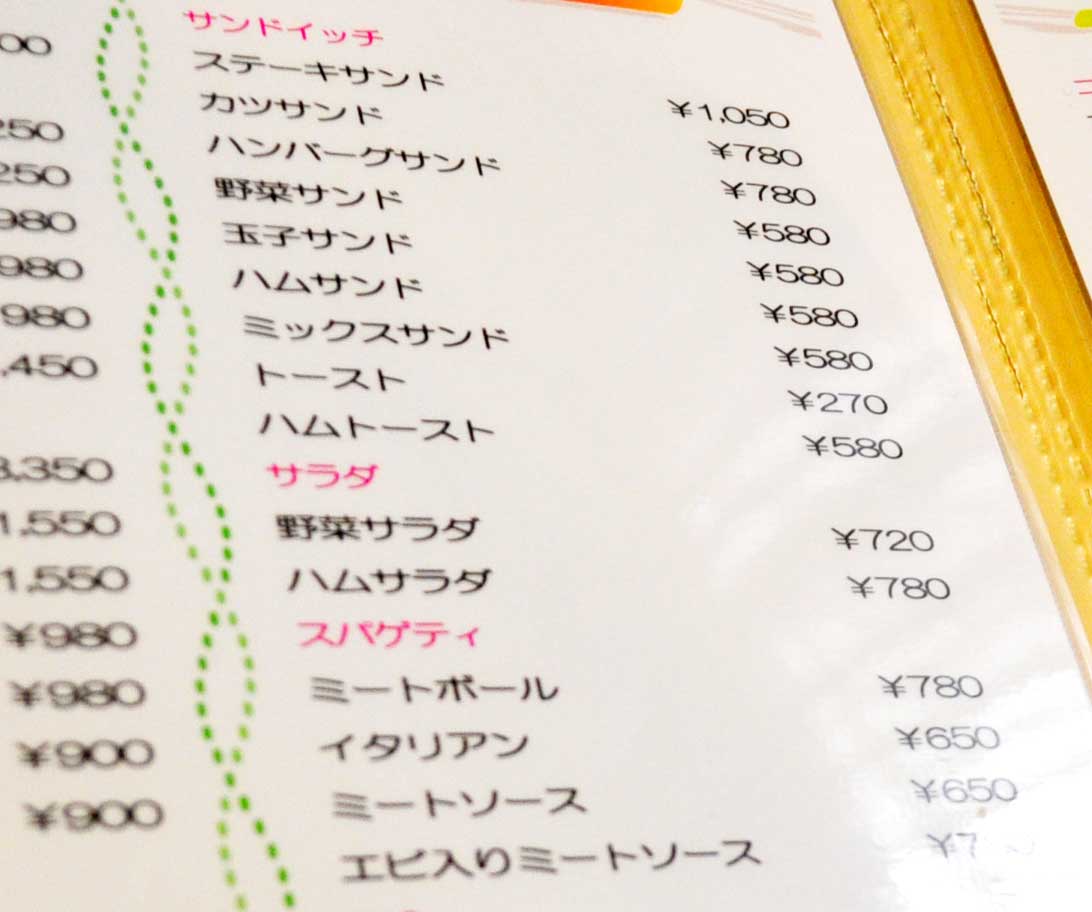 00
250
250
980
980
980
,450
3,350
1,550
1,550
¥980
¥980
¥900
¥900
サンドイッチ
ステーキサンド ¥1,050
カツサンド ¥780
ハンバーグサンド ¥780
野菜サンド ¥580
玉子サンド ¥580
ハムサンド ¥580
ミックスサンド ¥580
トースト ¥270
ハムトースト ¥580
サラダ
野菜サラダ ¥720
ハムサラダ ¥780
スパゲティ
ミートボール ¥780
イタリアン ¥650
ミートソース ¥650
エビ入りミートソース